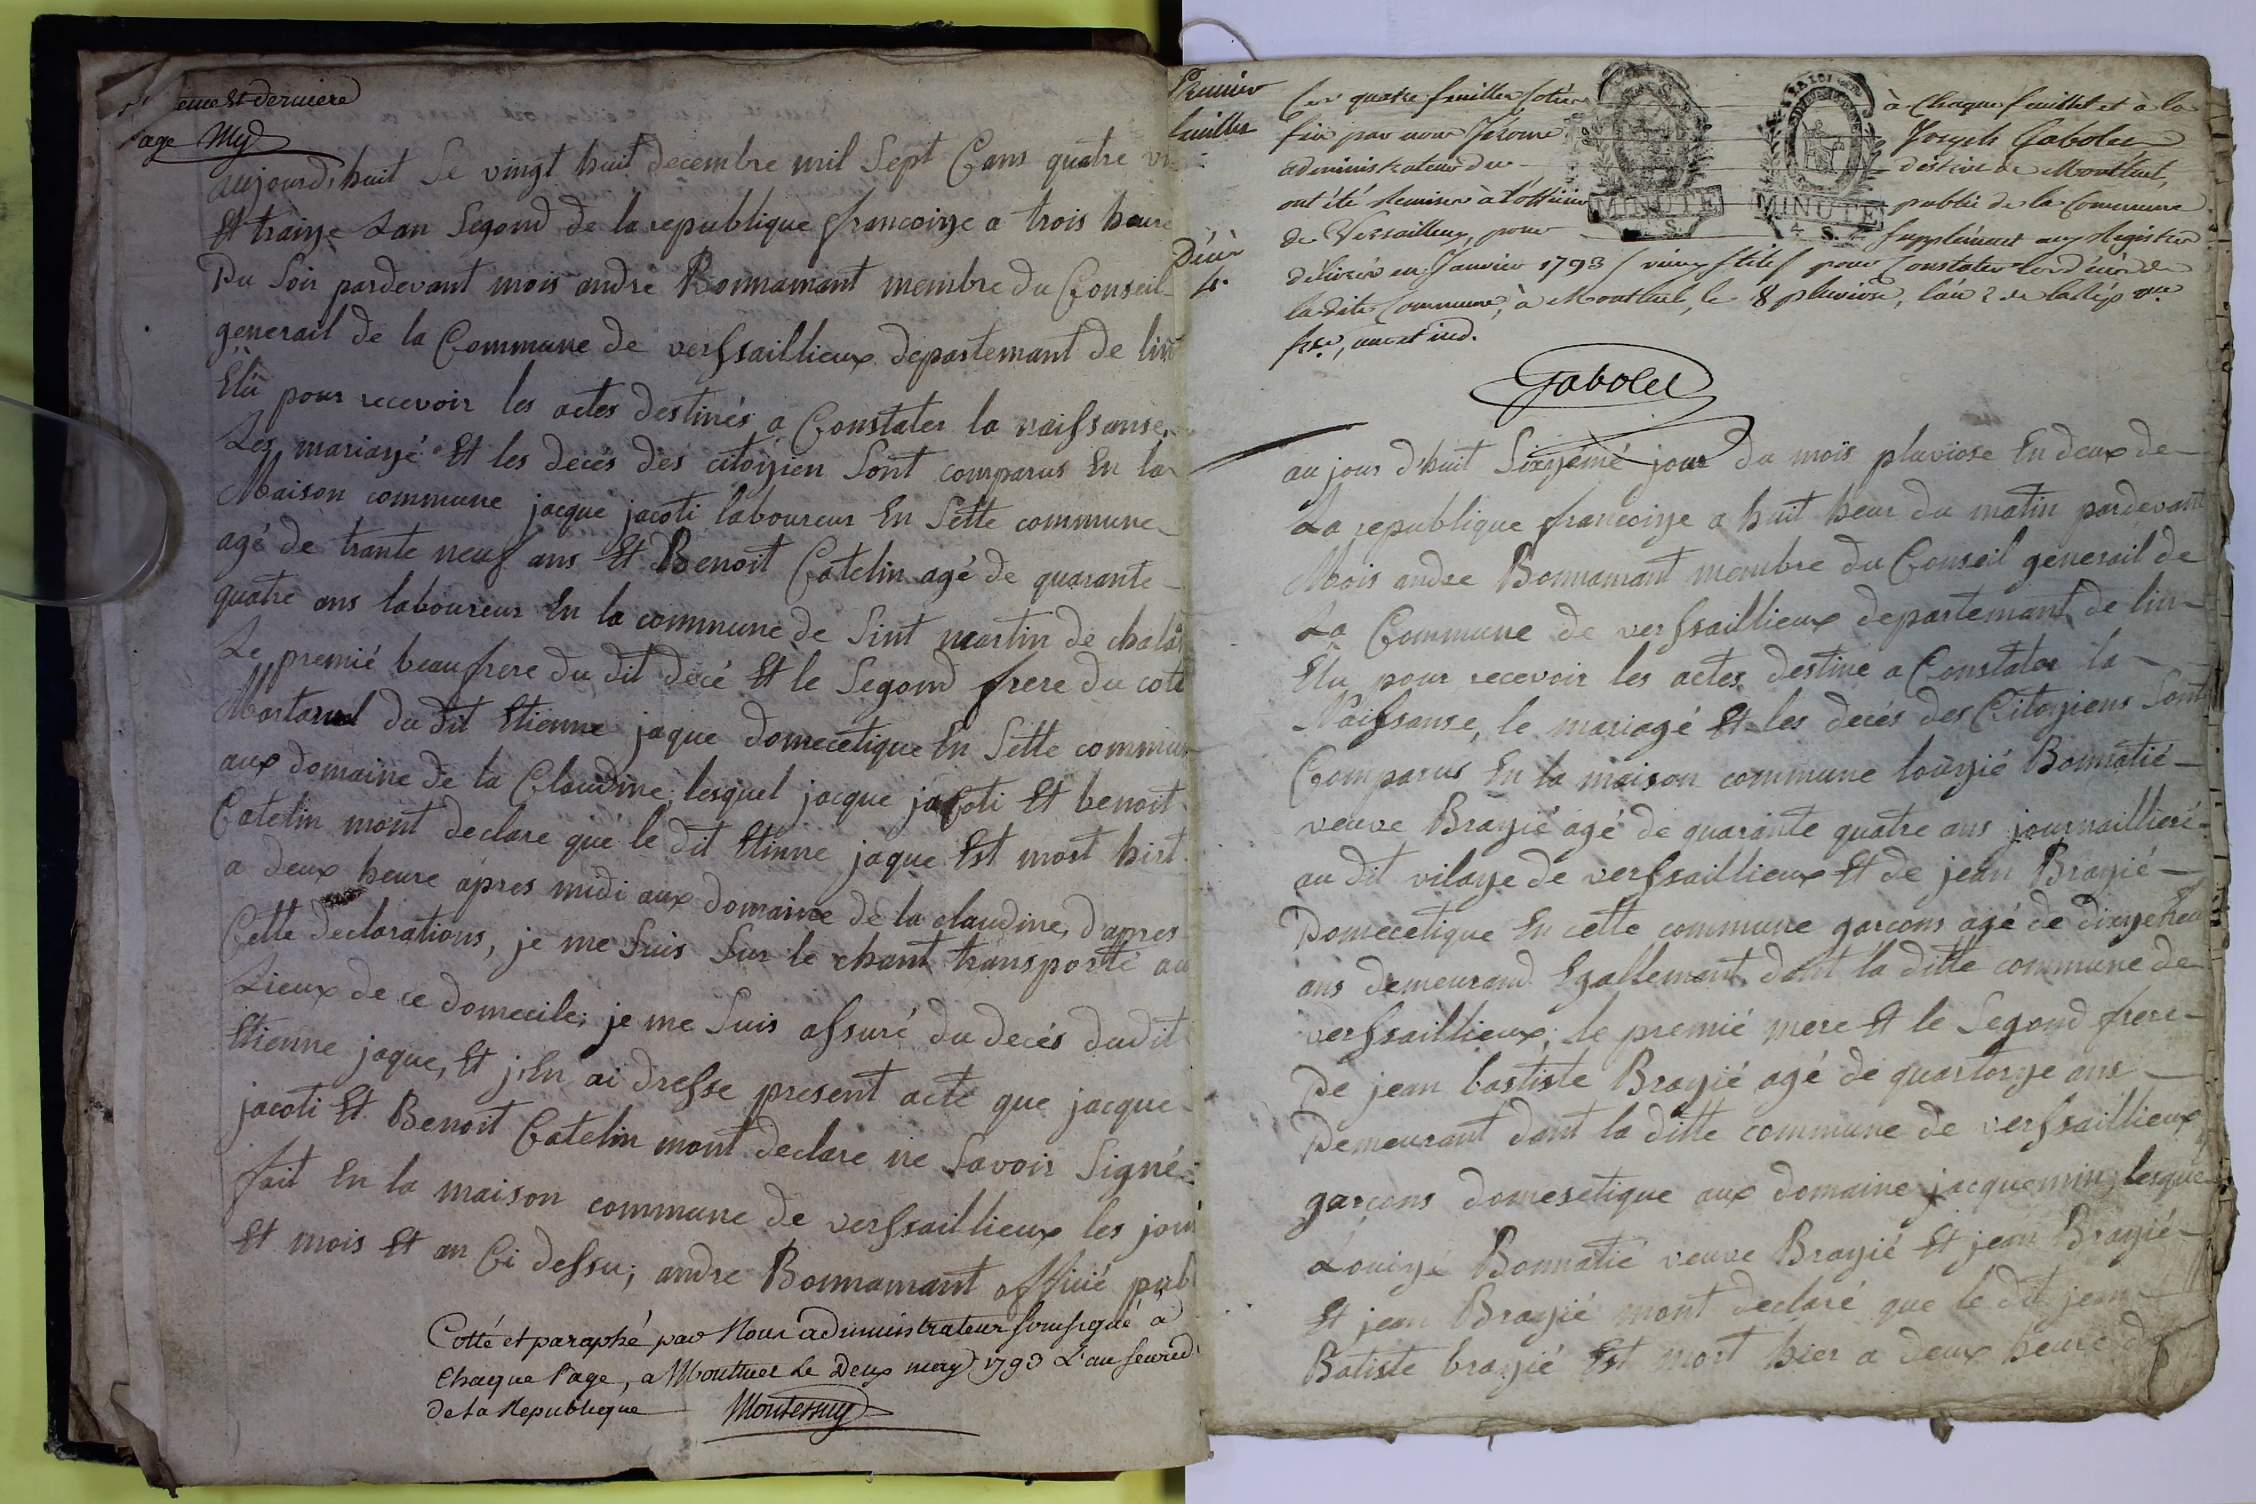 eme Et derniere
page My
aujourd'huit Le vingt huit decembre mil Sept Cans quatre vi
Et traize Lan Segond de la republique francoize a trois heure
Du Soir pardevant mois andré Bonnamant membre du Conseil
generail de la Commune de versaillieux departemant de lin
Elû pour recevoir les actes destinés a Constater la naissanse,
Les mariagé Et les deces des citoyien Sont comparus En la
Maison commune jacque jacoti laboureur En Sette commune
agé de trante neuf ans Et Benoit Catelin agé de quarante
quatre ans laboureur En la commune de Sint martin de chala
Le premié beaufrere du dit decé Et le Segond frere du coté
du dit Etienne jaque domecetique En Sette commun
aux domaine de la Claudine lesquel jacque jacoti Et benoit
Catelin mont declare qué le dit Etinne jaque Est mort hirt
a deux heure apres midi aux domaine de la claudine, dapres
Cette declarations, je me Suis Sur le chant transporté au
Lieux de ce domecile; je me Suis assuré du decés dudit
Etienne jaque, Et j'En ai dresse present acte que jacque
jacoti Et Benoit Catelin mont declare ne Savoir Signé
fait En la maison commune de versaillieux les jour
Et mois Et an Ci dessu; andre Bonnamant offiié pub
Cotté et paraphé par Nous administrateur soussigné à
Chaque Page, a Montluel Le Deux may 1793 L'an second
de la Republique Montessuy
Premier
feuillet
Ces quatre feuillets cotés à Chaque feuillet et à la
fin par nous Jerome Joseph Gabolet
administrateur du district de Montluel,
ont été remises à l'officier public de la Commune
de Versailleux, pour supplément aux Registres
Décès
délivrés en Janvier 1793 (vieux stile) pour Constater les décès de
la dite Commune, à Montluel, le 8 pluviôse, l'an 2 de la Rép
MINUTE
4. S.
MINUTE
4. S.
Gabolet
au jour d'huit Sixyémé jour du moïs pluviose En deux de
La republique francoize a huit heur du matin pardevant
Mois andre Bonnamant membre du Conseil generail de
La Commune de versaillieux departemant de lin
Elu pour recevoir les actes destine a Constater la
Naissanse, le mariagé Et les decés des Citoyiens Sont
Comparus En la maison commune louizié Bonnatié
veuve Brazié agé de quarante quatre ans journaillieré
au dit vilage de versaillieux Et de jean Brazié
Domecetique En cette commune garcons agé de dizeheui
ans demeurand Egallemant dant la ditte commune de
versaillieux; le premié mere Et le Segond frere
De jean bastiste Brazié agé de quartorze ans
Demeurant dant la ditte commune de versaillieux
garcons domesetique aux domaine jacquemin lesque
Louizé Bonnatié veuve Brazié Et jean Brazié
Et jean Brazié mont declaré que le dit jean
Batiste brazié Est mort hier a deux heure du